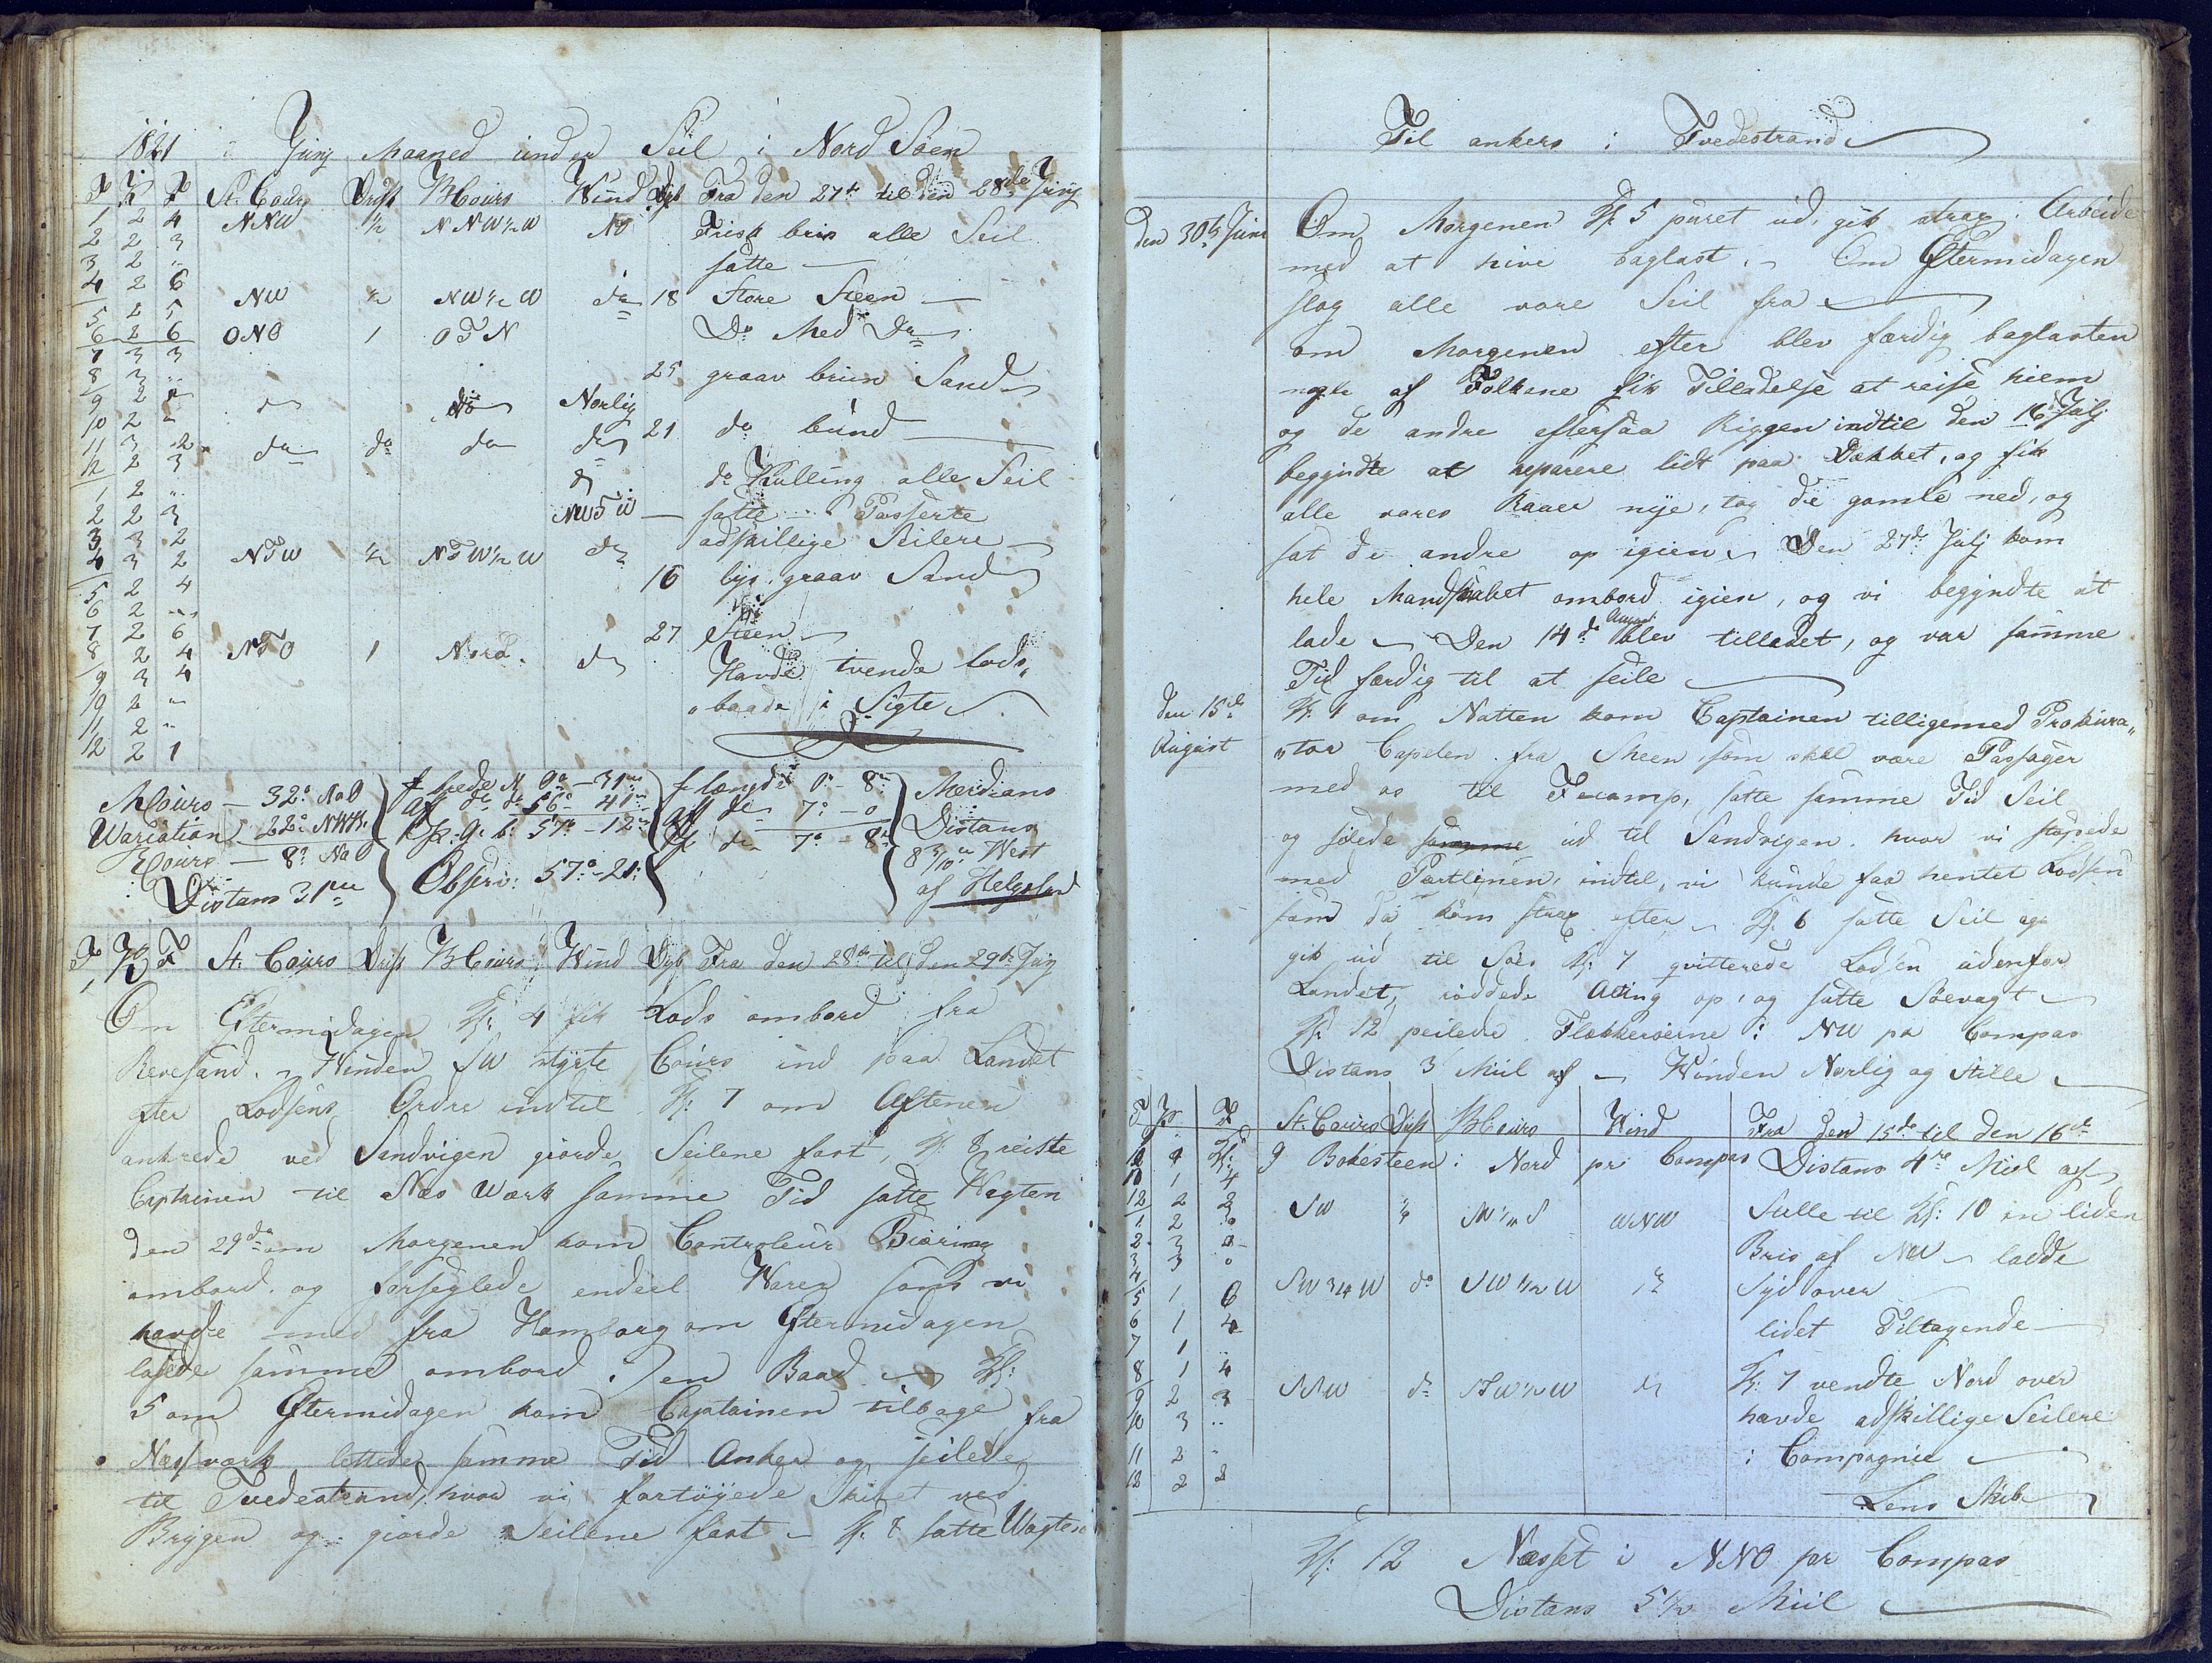 1821 i Junÿ Maaned under Seil i Nord Söen
T K F St. Cours Drift B Cours Wind Dÿb Fra den 27de til den 28de Junÿ
1 2 4 NNW 1/2 NNW 1/2 W NO Frisk bris alle Seil
2 2 3 satte
3 2 "
4 2 6 NW 1/2 NW 1/2 W do 18 store Steen
5 2 5
6 2 6 ONO 1 OTN Do Med Do
7 3 3
8 3 " 25 graav brun Sand
9 2 Norlig
10 2 "
11 3 2 do do do do 21 do bund
12 2 3
1 2 " do do Kulling alle Seil
2 2 3 NWTW satte Passerte
3 3 2 adskillige Seilere
4 3 2 NTW 1/2 NTW 1/2 W do
5 2 4 16 lÿs graav Sand
6 2 "
7 2 6 27 Steen
8 2 4 NTO 1 Nord do Havde tvende lods
9 3 4
10 2 " baade i Sigte
11 2 "
12 2 1
M Cours – 32° NO f brede N 0° – 31m f længde 0° – 8m Meridians
Wariation 22° NW. aff do do 56° – 41m aff do 7° – 0 Distans
Cours – 8° NO p. g. b. 57° – 12m do 7° – 8m 8 3/10 West
Distans 31 Observ: 57° – 21 af Helgeland
T K F St. Cours Drift B Cours Wind Dÿb Fra den 28de til den 29de Junÿ
Om Eftermidagen Kl: 4 fik Lods ombord fra
Revesand. Winden SW stÿrte Cours ind paa Landet
efter Lodsens Ordre indtil Kl: 7 om Aftenen
ankrede ved Sandvigen giorde Seilene fast, Kl: 8 reiste
Captainen til Næs Wærk samme Tid satte Wagten
den 29de om Morgenen kom Controleur Biöring
ombord og forseglede endeel Warer som vi
havde med fra Hamborg om Eftermidagen
losede samme ombord i en Baad Kl:
5 om Eftermidagen kom Captainen tilbage fra
Næssværk lettede samme Tid Anker og seilede
til Tvedestrand, hvor vi fortöÿede Skibet ved
Brÿgen og giorde Seilene fast – Kl: 8 satte Wagten
Til ankers i Tvedestrand
Den 30te Juni Om Morgenen Kl: 5 puret ud, gik strax i Arbeide
med at hive baglast. – Om Eftermidagen
slog alle vore Seil fra
om Morgenen efter blev færdig baglasten
nogle af Folkene fik Tilladelse at reise hiem
og de andre eftersaa Riggen indtil den 16de Julj
begÿndte at reparere lidt paa Dækket, og fik
alle vores Raaer nÿe, tog de gamle ned, og
sat de andre op igien – Den 27de Julj kom
hele Mandskabet ombord igien, og vi begÿndte at
lade – Den 14de August blev tilladet, og var samme
Tid færdig til at seile
den 15de Kl: 1 om Natten kom Captainen tilligemed Prokura„
August „tor Capelen fra Skeen som skal være Passager
med os til Fecamp, satte samme Tid Seil
og seilede samme ud til Sandvigen hvor vi stopede
med Partlinen, indtil vi kunde faa hentet Lodsen
som da kom strax efter – Kl: 6 satte Seil og
gik ud til Söes Kl: 7 qvitterede Lodsen udenfor
Landet, röddede Alting op, og satte Söevagt
Kl: 12 peilede Flækkeröerne i NW pr Compas
Distans 3 Miil af – Winden Norlig og Stille
T K F St. Cours Drift B Cours Wind Fra den 15de til den 16de
Kl: 9 Bokesteen i Nord pr Compas Distans 4re Miil af
10 1 4
12 2 2 SW WNW Stille til Kl: 10 en liden
1 2 "
2 3 " Bris af NW – ladde
3 3 "
4 SW 3/4 W do SW 1/2 W Sÿd over
5 1 6
6 1 4 lidet Tiltagende
7 1 "
8 1 4 do do Kl: 7 vendte Nord over
9 2 3
10 3 " havde adskillige Seilere
11 2 " i Compagnie
12 2 2 Lens Skib
Kl: 12 Næsset i NNO pr Compas
Distans 5 1/2 Miil